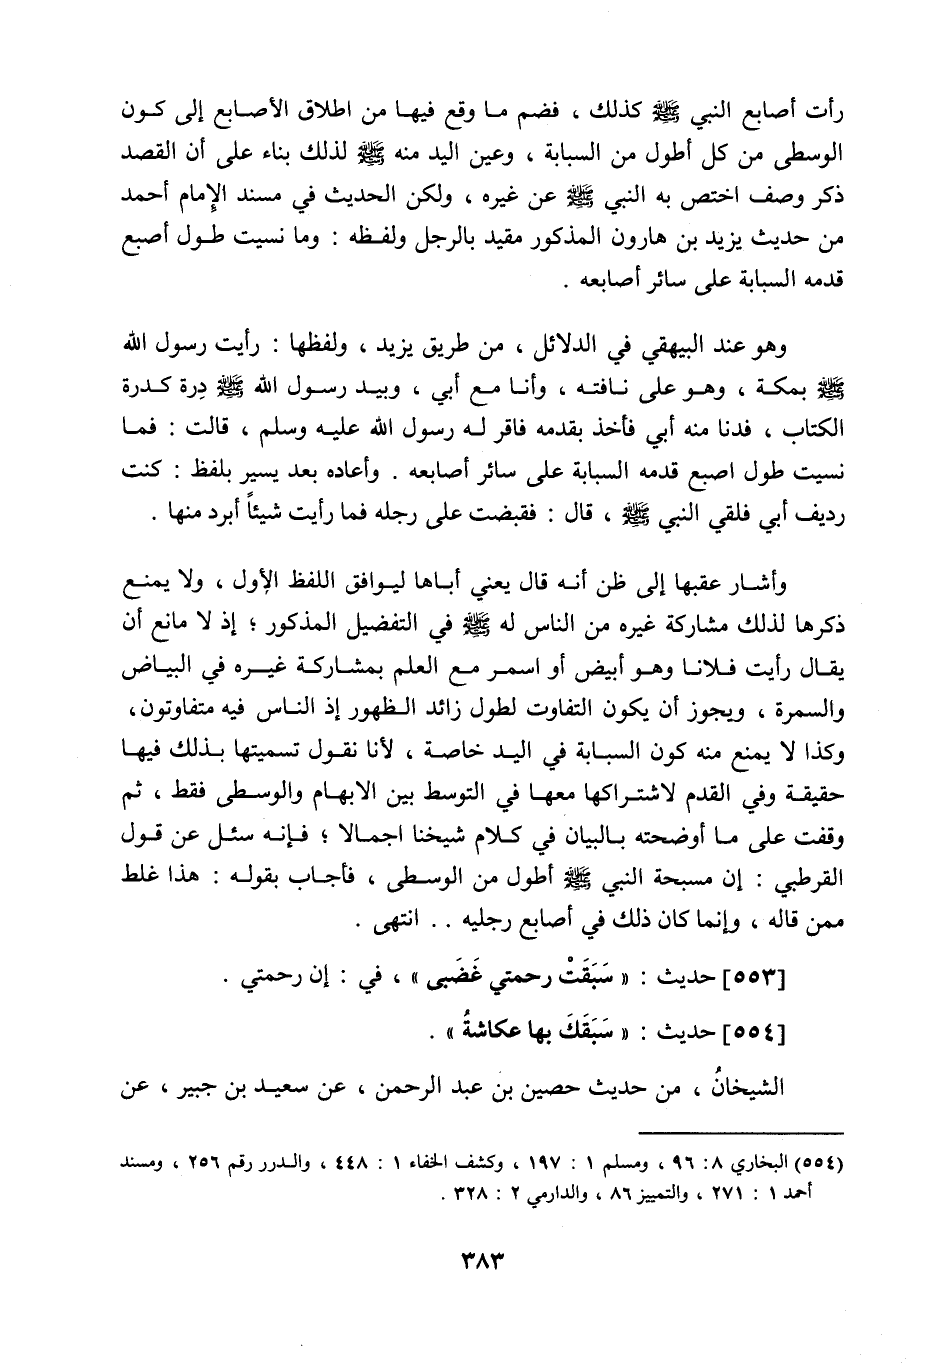 رأت أصابع النبي ﷺ كذلك ، فضم ما وقع فيها من اطلاق الأصابع إلى كون
الوسطى من كل أطول من السبابة ، وعين اليد منه ﷺ لذلك بناء على أن القصد
ذكر وصف اختص به النبي ﷺ عن غيره ، ولكن الحديث في مسند الإمام أحمد
من حديث يزيد بن هارون المذكور مقيد بالرجل ولفظه : وما نسيت طول أصبع
قدمه السبابة على سائر أصابعه .
وهو عند البيهقي في الدلائل ، من طريق يزيد ، ولفظها : رأيت رسول الله
ﷺ بمكة ، وهو على نافته ، وأنا مع أبي ، وبيد رسول الله ﷺ دِرة كدرة
الكتاب ، فدنا منه أبي فأخذ بقدمه فاقر له رسول الله عليه وسلم ، قالت : فما
نسيت طول اصبع قدمه السبابة على سائر أصابعه . وأعاده بعد يسير بلفظ : كنت
رديف أبي فلقي النبي ﷺ ، قال : فقبضت على رجله فما رأيت شيئاً أبرد منها .
وأشار عقبها إلى ظن أنه قال يعني أباها ليوافق اللفظ الأول ، ولا يمنع
ذكرها لذلك مشاركة غيره من الناس له ﷺ في التفضيل المذكور ؛ إذ لا مانع أن
يقال رأيت فلانا وهو أبيض أو اسمر مع العلم بمشاركة غيره في البياض
والسمرة ، ويجوز أن يكون التفاوت لطول زائد الظهور إذ الناس فيه متفاوتون،
وكذا لا يمنع منه كون السبابة في اليد خاصة ، لأنا نقول تسميتها بذلك فيها
حقيقة وفي القدم لاشتراكها معها في التوسط بين الابهام والوسطى فقط ، ثم
وقفت على ما أوضحته بالبيان في كلام شيخنا اجمالا ؛ فإنه سئل عن قول
القرطبي : إن مسبحة النبي ﷺ أطول من الوسطى ، فأجاب بقوله : هذا غلط
ممن قاله ، وإنما كان ذلك في أصابع رجليه . . انتهى .
[٥٥٣] حديث : « سَبَقَتْ رحمتي غَضَبى » ، في : إن رحمتي .
[٥٥٤] حديث : « سَبَقَكَ بها عكاشةُ » .
الشيخانُ ، من حديث حصين بن عبد الرحمن ، عن سعيد بن جبير ، عن
(٥٥٤) البخاري ٨: ٩٦ ، ومسلم ١ : ١٩٧ ، وكشف الخفاء ١ : ٤٤٨ ، والدرر رقم ٢٥٦ ، ومسند
أحمد ١ : ٢٧١ ، والتمييز ٨٦ ، والدارمي ٢ : ٣٢٨ .
٣٨٣